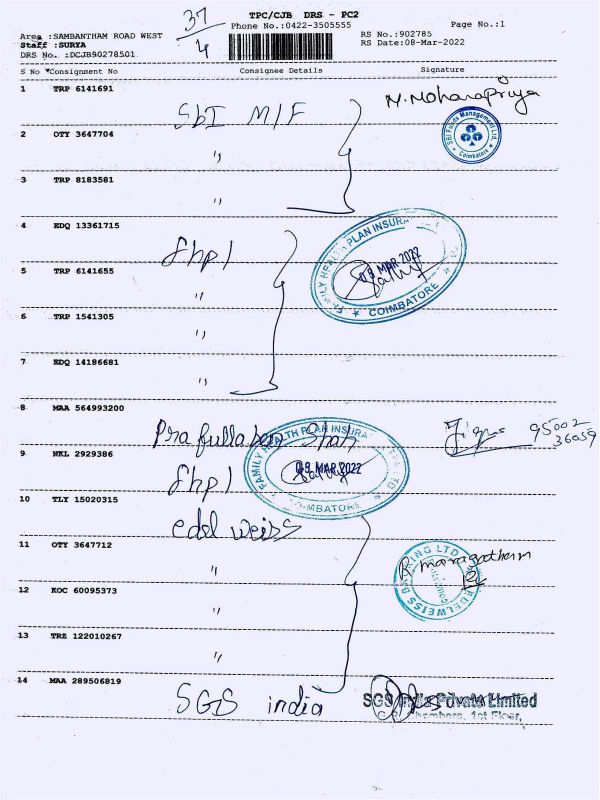 37
4
TPC/CJB DRS - PC2
Phone No.:0422-3505555
Page No.:1
Area :SAMBANTHAM ROAD WEST
RS No.:902785
Staff :SURYA
RS Date:08-Mar-2022
DRS No. :DCJB90278501
S No Consignment No Consignee Details Signature
1 TRP 6141691
SbI M/F
M.Mohanapriya
SBI Funds Management Ltd.
Coimbatore
2 OTY 3647704
"
3 TRP 8183581
"
4 EDQ 13361715
fhpl
FAMILY HEALTH PLAN INSURA
MAR 2022
COIMBATORE
5 TRP 6141655
"
6 TRP 1541305
"
7 EDQ 14186681
"
8 MAA 564993200
Prafullaben Shah
95002
36059
9 NKL 2929386
fhpl
FAMILY HEALTH PLAN INSURA
MAR 2022
OIMBATORE
10 TLY 15020315
edelweiss
11 OTY 3647712
"
R. maragatham
EDELWEISS BROKING LTD
12 KOC 60095373
"
13 TRE 122010267
"
14 MAA 289506819
SGS india
SGS India Private Limited
1st Floor,